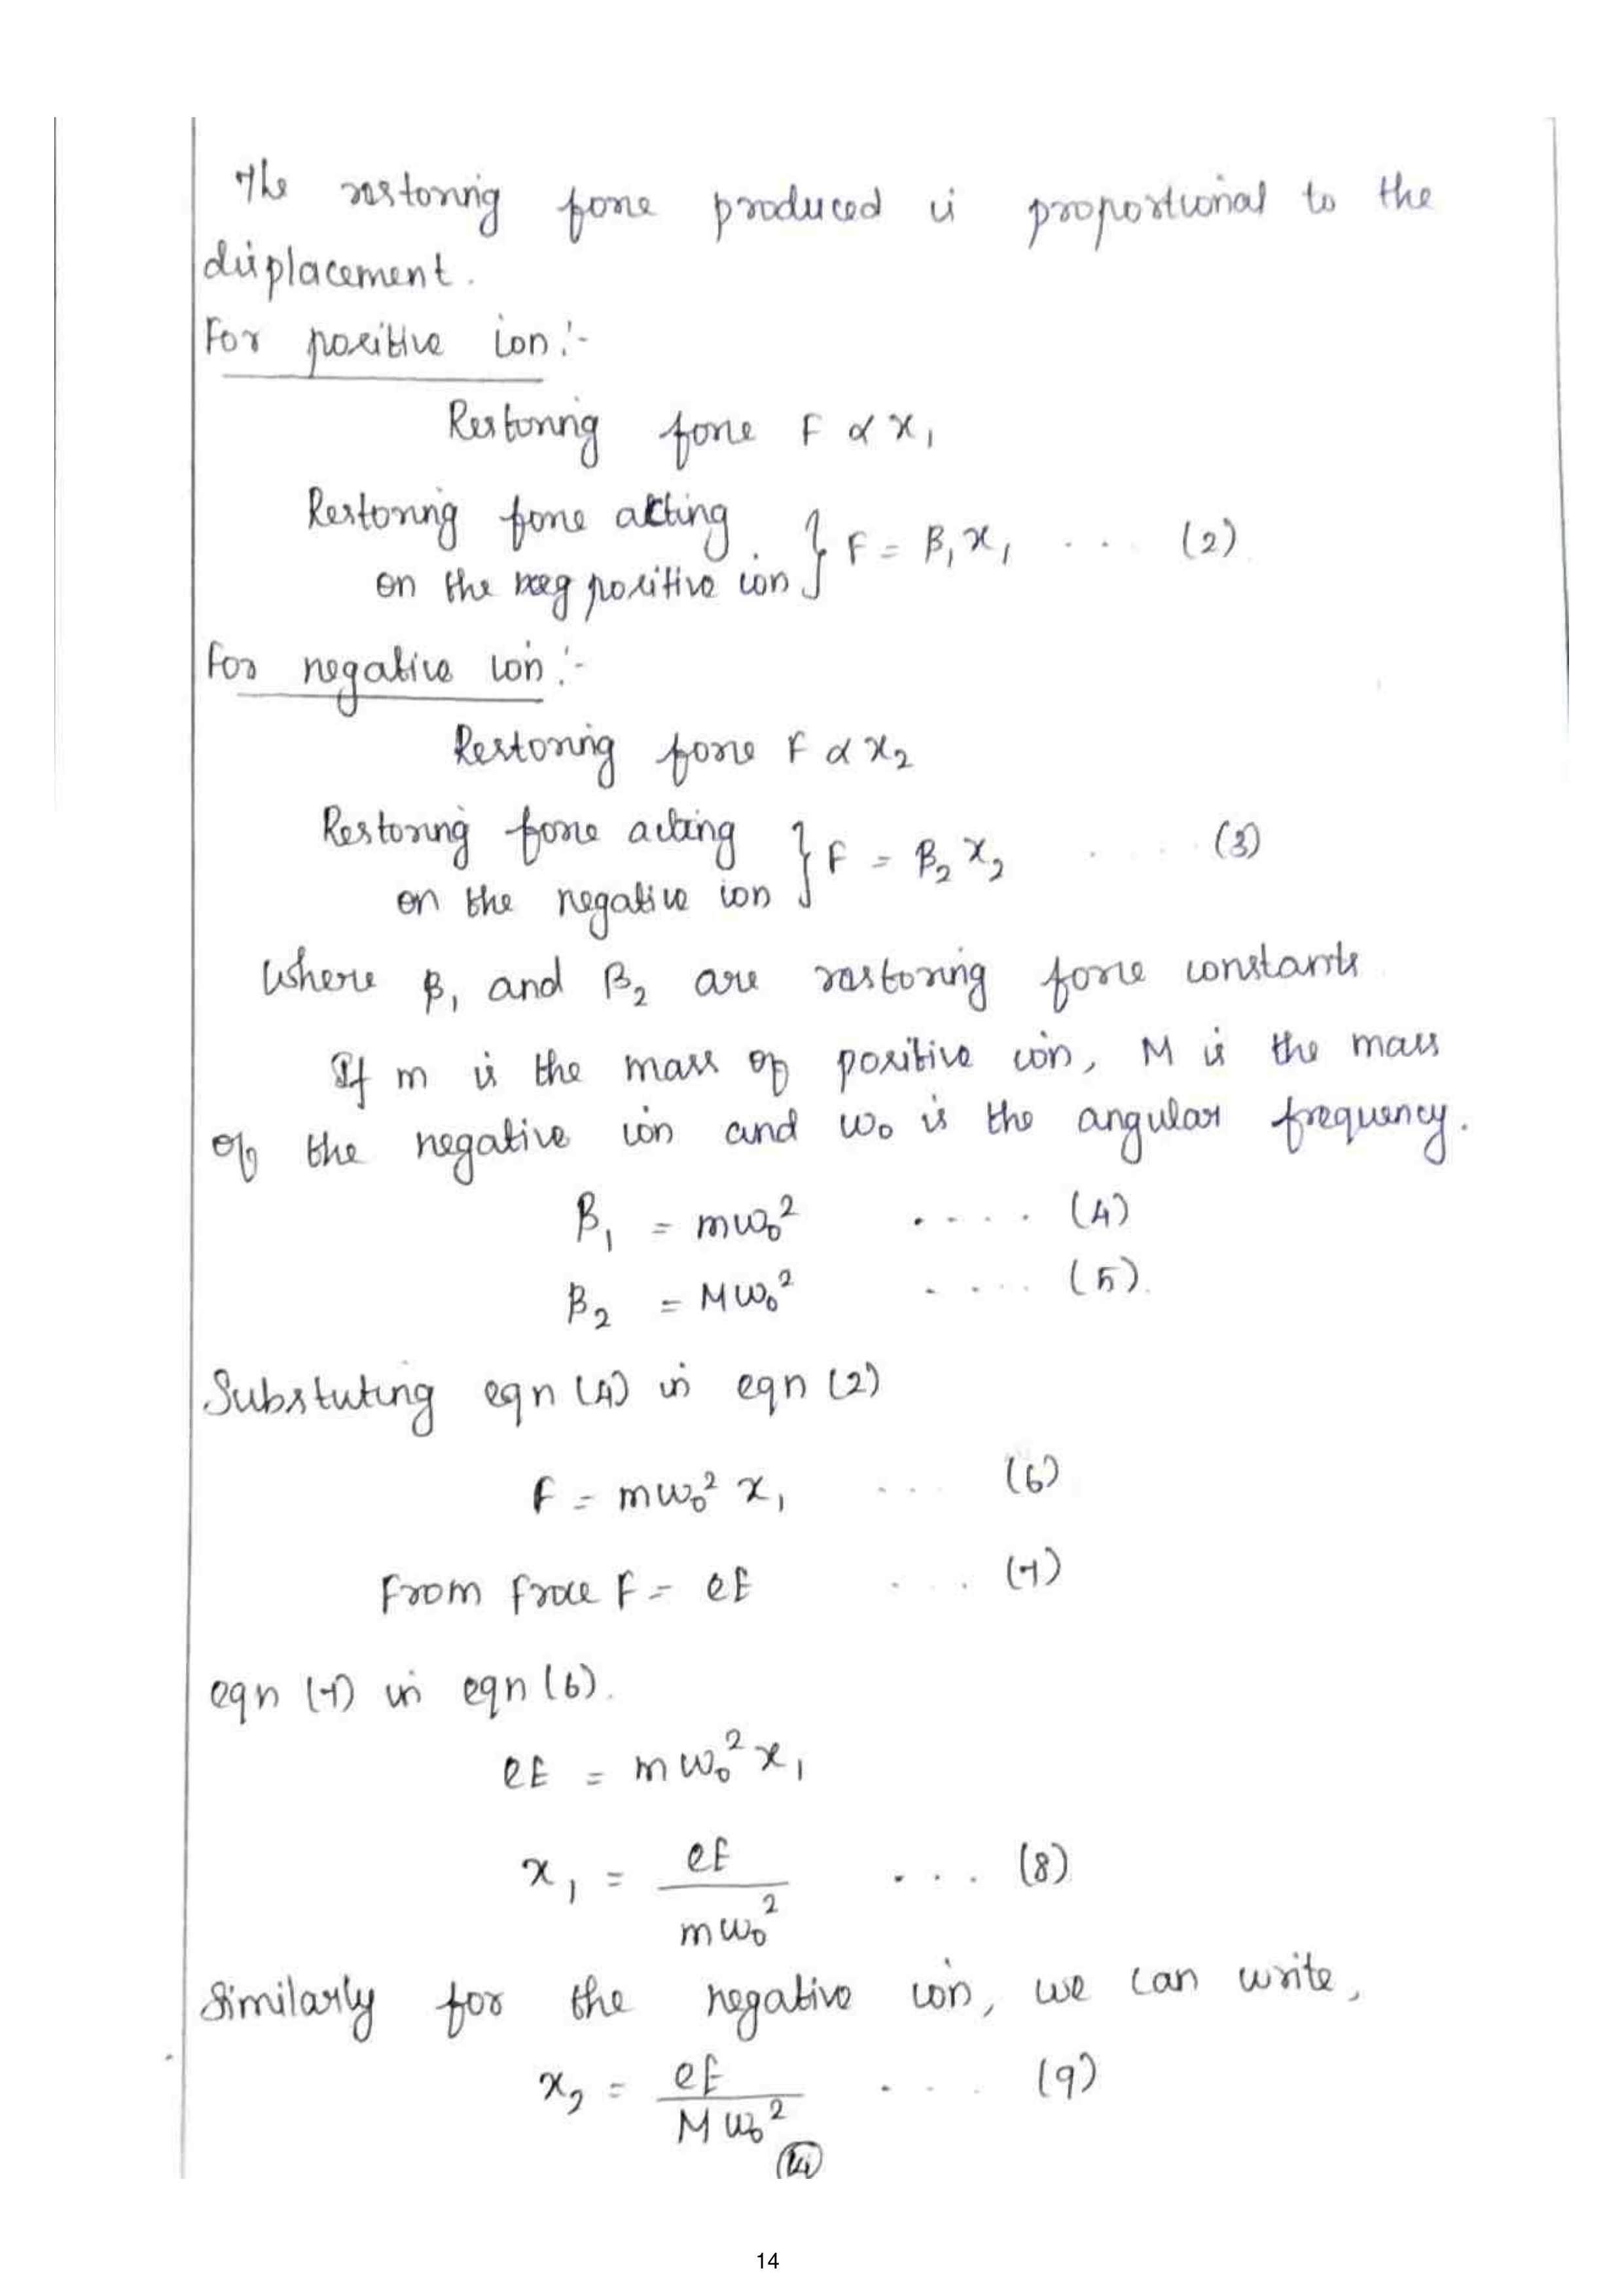 The restoring force produced is proportional to the
displacement.
For positive ion:-
Restoring force F ∝ x₁
Restoring force acting
on the neg positive ion } F = β₁x₁ ... (2)
For negative ion:-
Restoring force F ∝ x₂
Restoring force acting
on the negative ion } F = β₂x₂ .... (3)
Where β₁ and β₂ are restoring force constants
If m is the mass of positive ion, M is the mass
of the negative ion and ω₀ is the angular frequency.
β₁ = mω₀² .... (4)
β₂ = Mω₀² .... (5).
Substuting eqn (4) in eqn (2)
F = mω₀² x₁ ... (6)
From froce F = eE ... (7)
eqn (7) in eqn (6).
eE = mω₀²x₁
x₁ = eE / mω₀² ... (8)
Similarly for the negative ion, we can write,
x₂ = eE / Mω₀² .... (9)
14
14